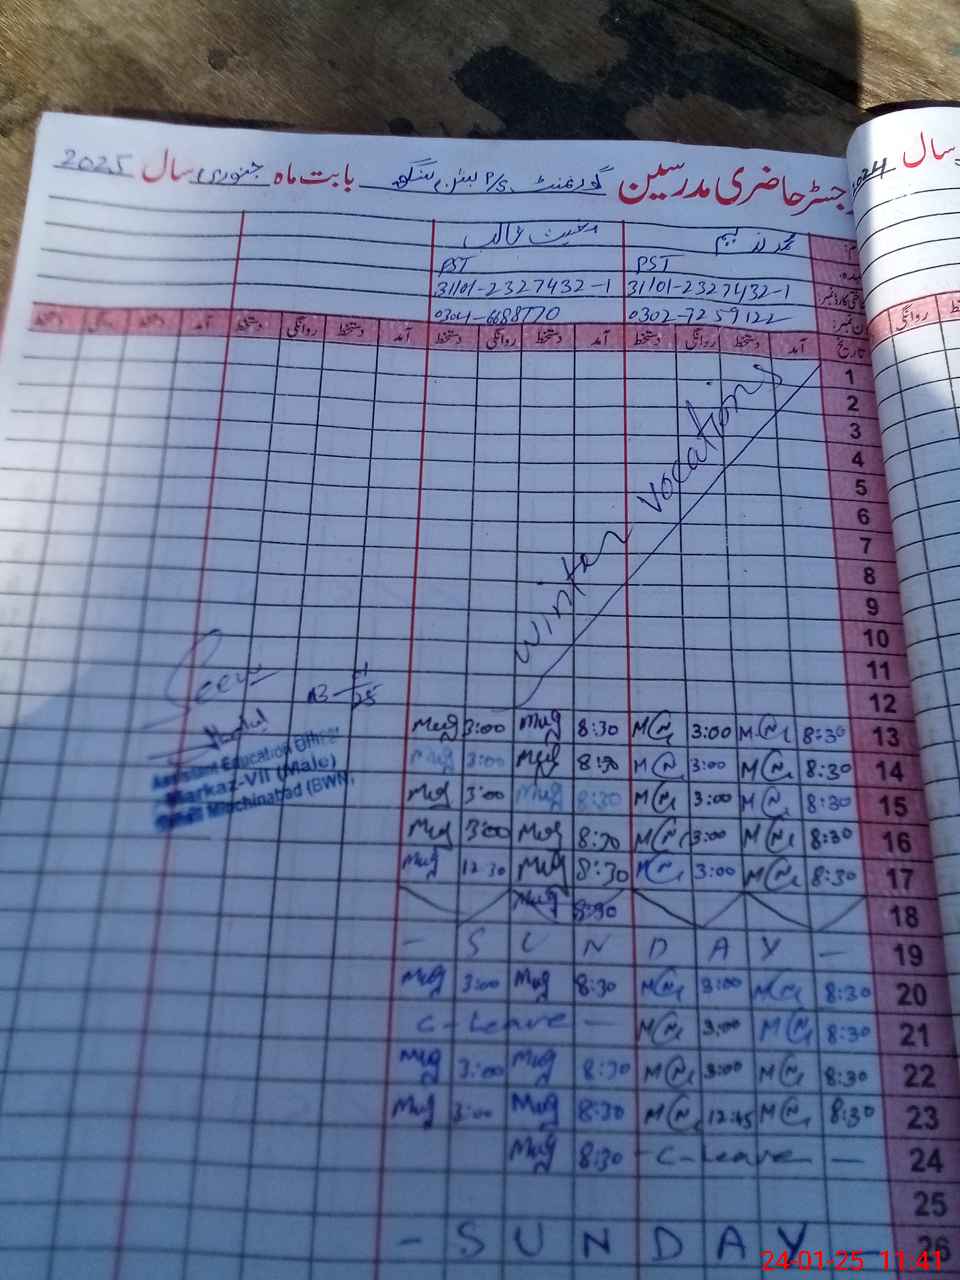 رجسٹر حاضری مدرسین گورنمنٹ P/S بابت ماہ جنوری سال 2025
سال 2024
PST PST
31101-2327432-1 31101-2327432-1
0302-7259122
آمد دستخط روانگی دستخط آمد دستخط روانگی دستخط آمد دستخط روانگی دستخط آمد دستخط روانگی دستخط
تاریخ
روانگی
1
2
3
4
5
6
7
8
9
10
11
12
Winter vocations
13 8:30 3:00 8:30 Mug 3:00 Mug
14 8:30 3:00 8:30 Mug 3:00 Mug
15 8:30 3:00 8:30 Mug 3:00 Mug
16 8:30 3:00 8:30 Mug 3:00 Mug
17 8:30 3:00 8:30 Mug 12:30 Mug
18 8:30 Mug
19 - S U N D A Y -
20 8:30 3:00 8:30 Mug 3:00 Mug
21 8:30 3:00 C-Leave -
22 8:30 3:00 8:30 Mug 3:00 Mug
23 8:30 12:45 8:30 Mug 3:00 Mug
24 - C-Leave - 8:30 Mug
25
26 - S U N D A Y -
Seen
Assistant Education Officer
Markaz-VII (Male)
Minchinabad (BWN)
24-01-25 11:41